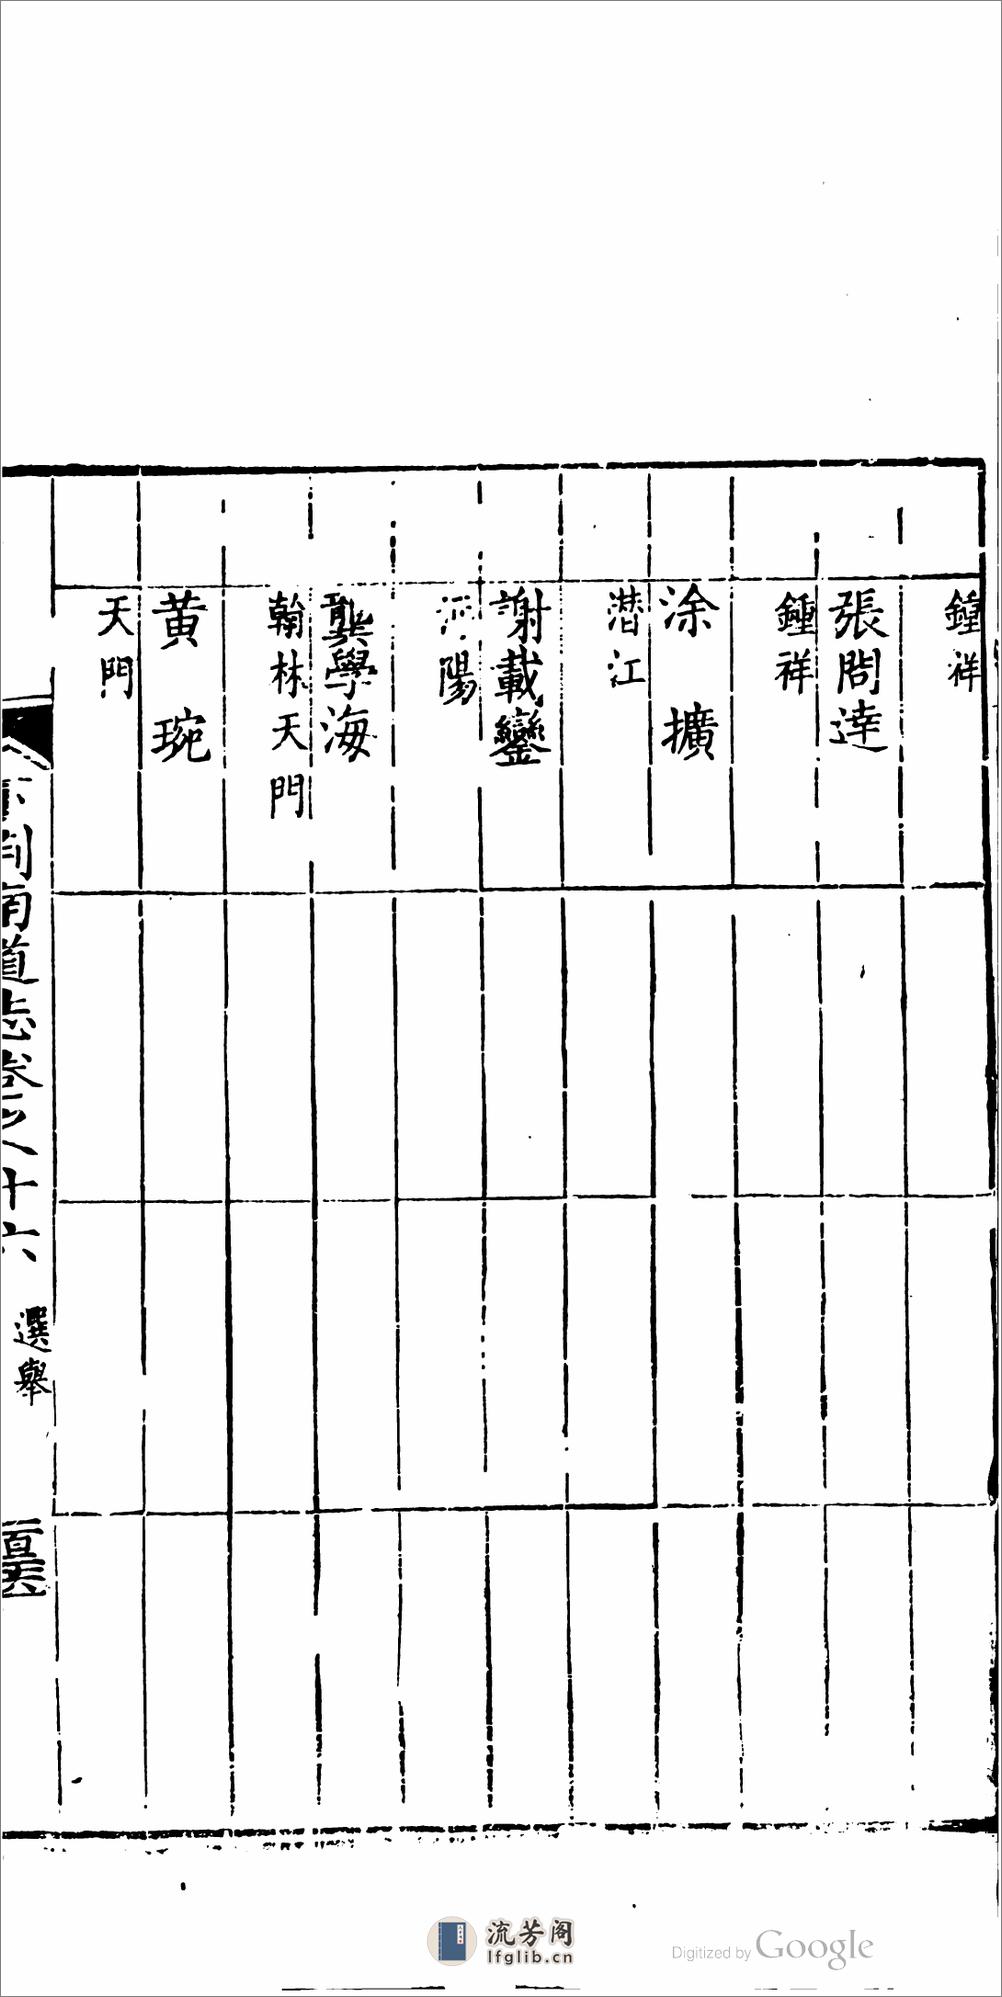 鍾祥
張問達
鍾祥
涂擴
潛江
謝載鑾
沔陽
龔學海
翰林天門
黄琬
天門
荆南道志卷之八十六 選舉
流芳阁
lfglib.cn
Digitized by Google